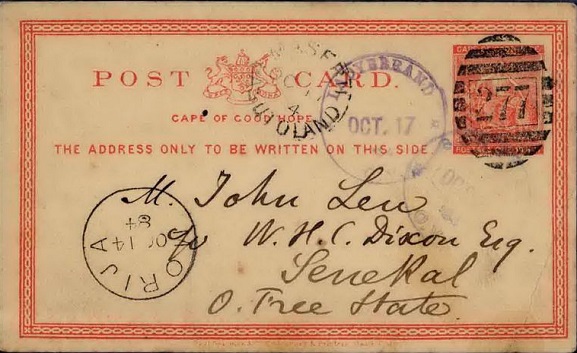 POST CARD.
CAPE OF GOOD HOPE
THE ADDRESS ONLY TO BE WRITTEN ON THIS SIDE
MASERU
OC
4
BASUTOLAND
LADYBRAND
OCT. 17
277
ORIJA
OC 14
84
M. John Leu
c/o W. H. C. Dixon Esq.
Senekal
O. Free State.